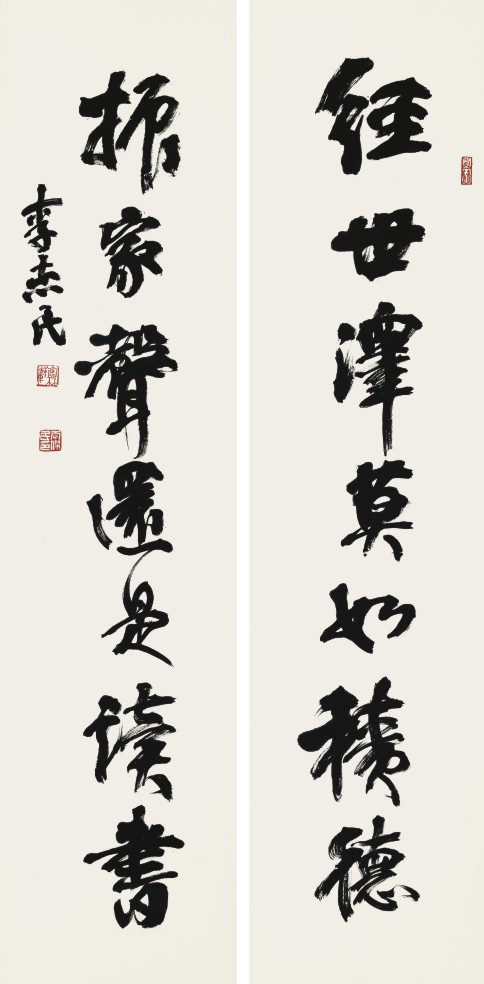 經世澤莫如積德
振家聲還是讀書
李杰民